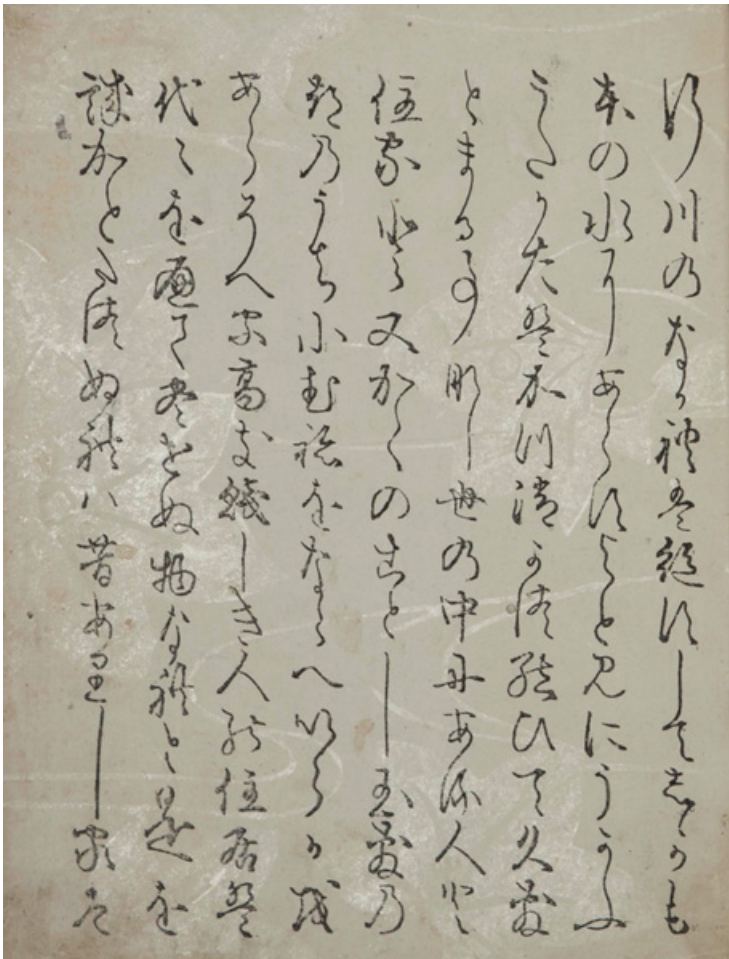 行川のなかれは絶すしてしかも
本の水にあらすよとみにうかふ
うたかたはかつ消かつ結ひて久敷
とまる事なし世の中にある人と
住家と又かくのことし玉敷の
都のうちにむねをならへいらかを
あらそへる高き賤しき人の住居は
代々を歴てつきせぬ物なれと是を
誠かとたつぬれは昔ありし家は